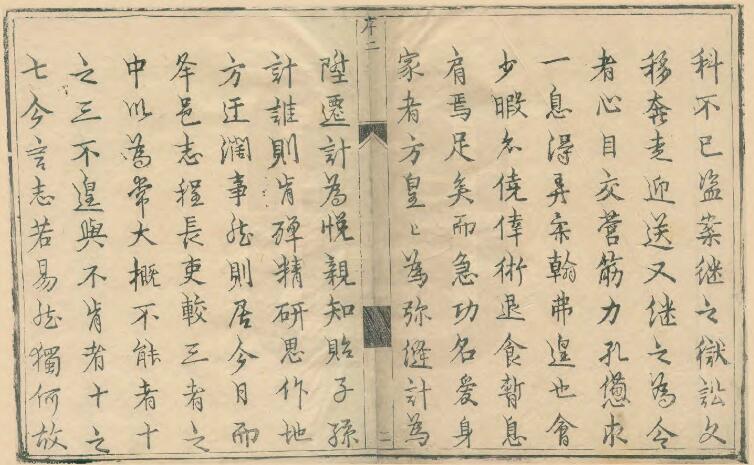 科不已盜案继之獄訟文
移奔走迎送又继之為令
者心目交营筋力孔憊求
一息淂弄柔翰弗遑也會
少暇僥倖術退食暫息
肩焉足矣而急功名爱身
家者方皇〻為弥缝計為
序二
二
陞遷計為悦親知貽子孫
計誰則肯殫精研思作地
方迂濶事然則居今日而
举邑志程長吏較三者之
中以為常大概不能者十
之三不遑與不肯者十之
七今言志若易然獨何故